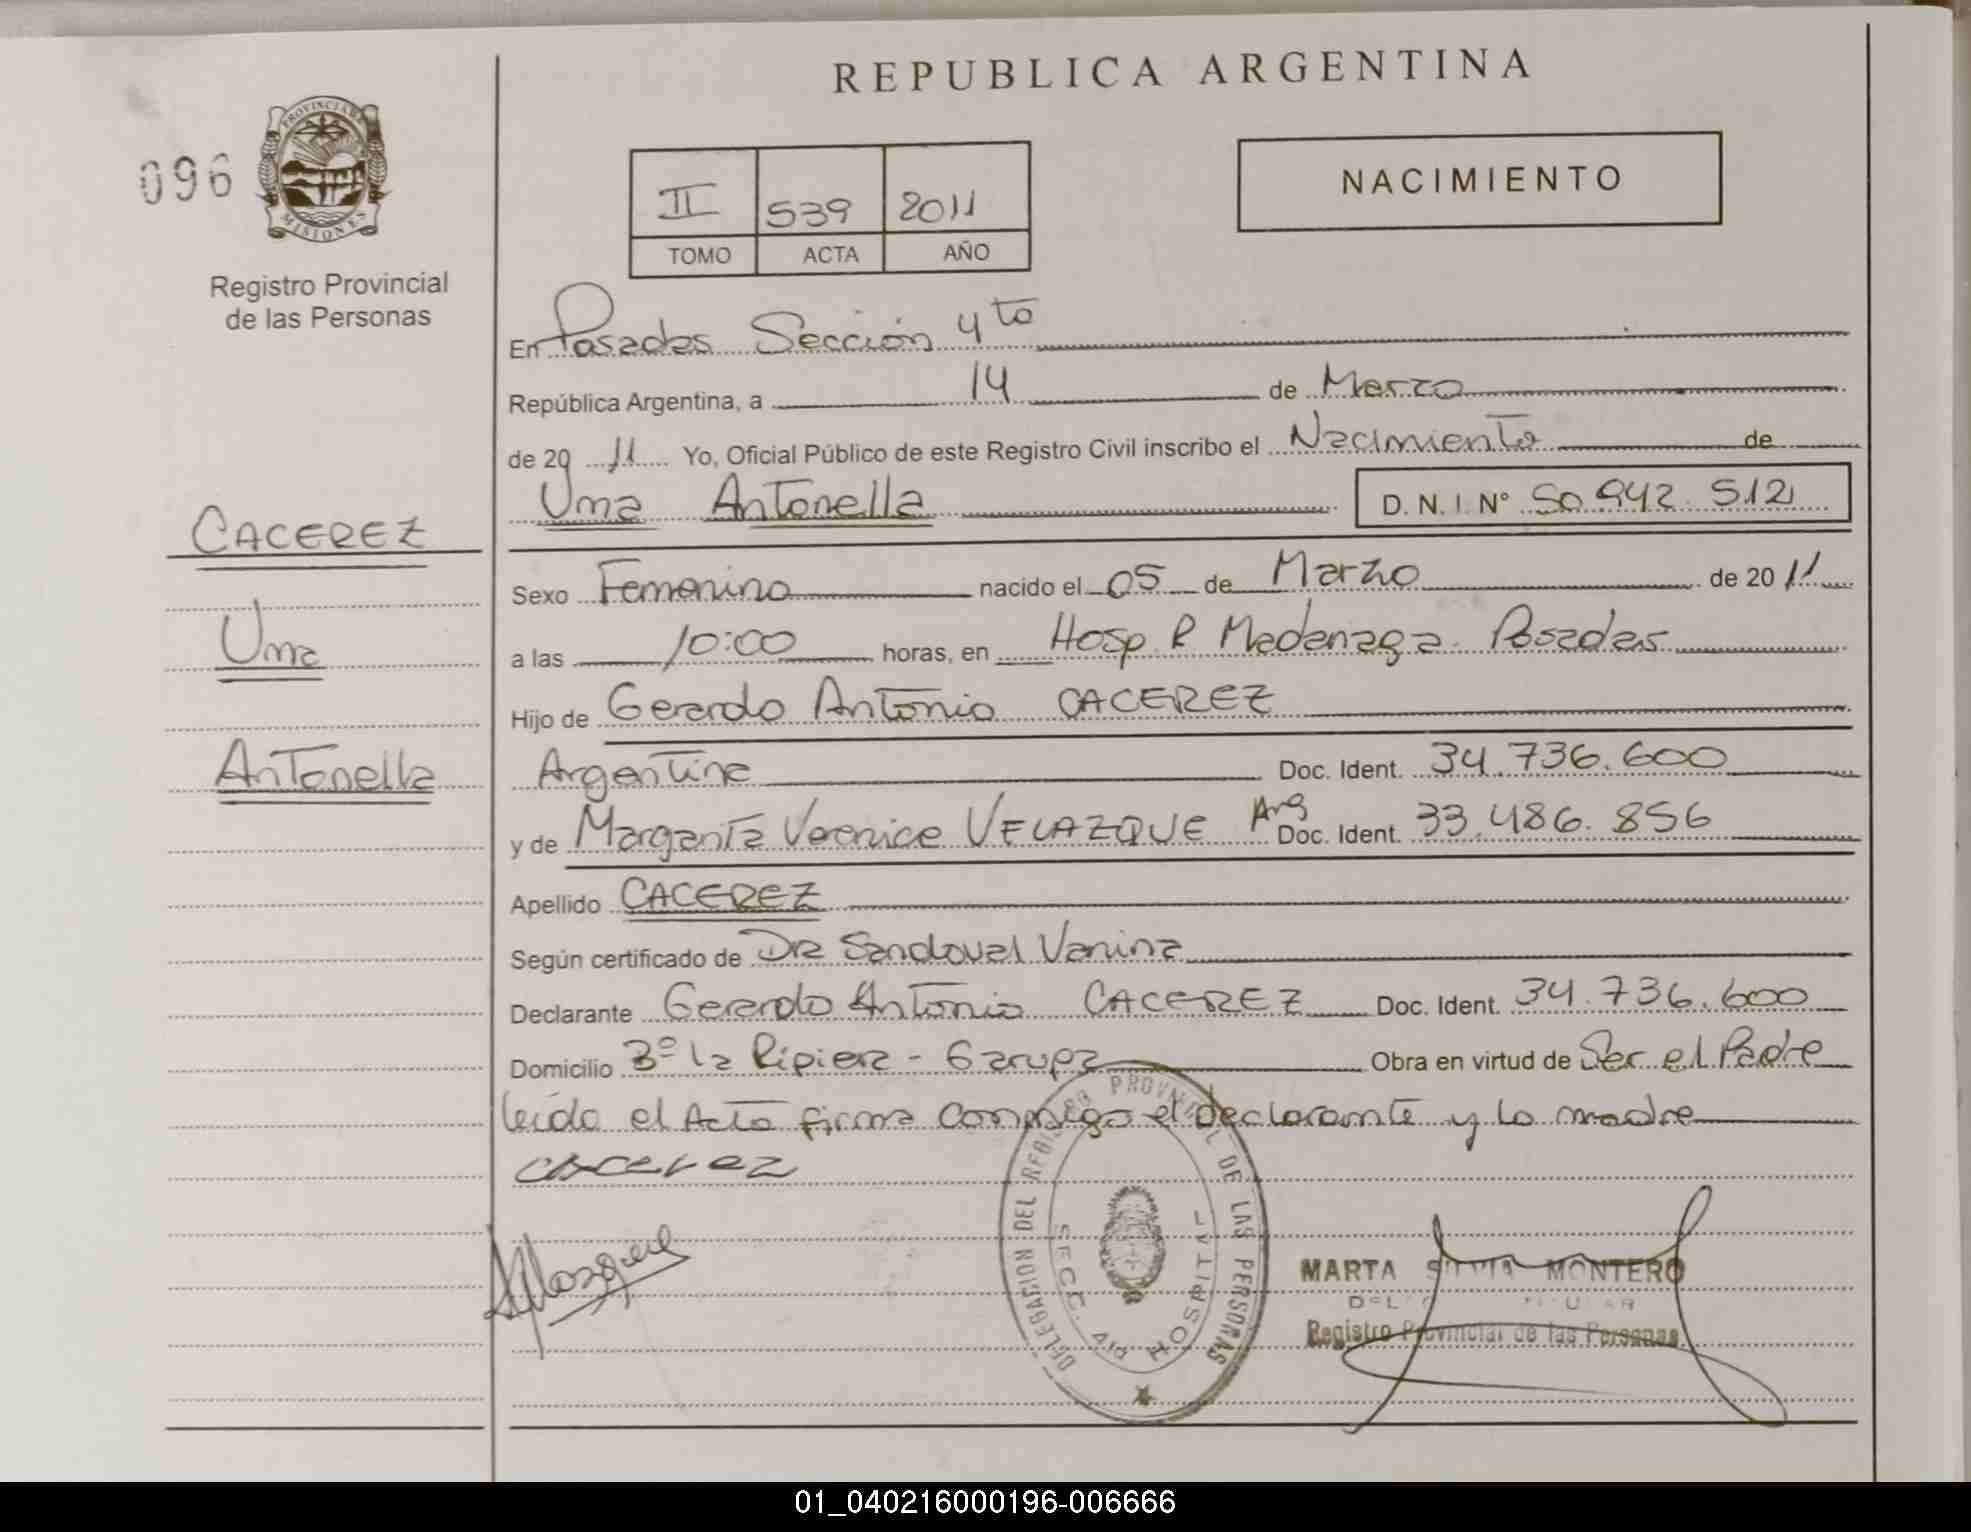 REPUBLICA ARGENTINA
096
PROVINCIA DE
MISIONES
Registro Provincial
de las Personas
II 539 2011
TOMO ACTA AÑO
NACIMIENTO
En Posadas Sección 4to
República Argentina, a 14 de Marzo
de 2011 Yo, Oficial Público de este Registro Civil inscribo el Nacimiento de
Uma Antonella D.N.I. Nº 50.942.512
CACEREZ
Uma
Antonella
Sexo Femenino nacido el 05 de Marzo de 2011
a las 10:00 horas, en Hosp. R Madariaga. Posadas
Hijo de Gerardo Antonio CACEREZ
Argentina Doc. Ident. 34.736.600
y de Margarita Veronice VELAZQUE Arg Doc. Ident. 33.486.856
Apellido CACEREZ
Según certificado de Dra Sandoval Vanina
Declarante Gerardo Antonio CACEREZ Doc. Ident. 34.736.600
Domicilio Bº la Ripiera - Garupa Obra en virtud de Ser el Padre
leido el Acta firma conmigo el declarante y la madre
cacerez
DELEGACION DEL REGISTRO PROVINCIAL DE LAS PERSONAS
SECC. 4ta HOSPITAL
MARTA SILVIA MONTERO
Registro Provincial de las Personas
01_040216000196-006666